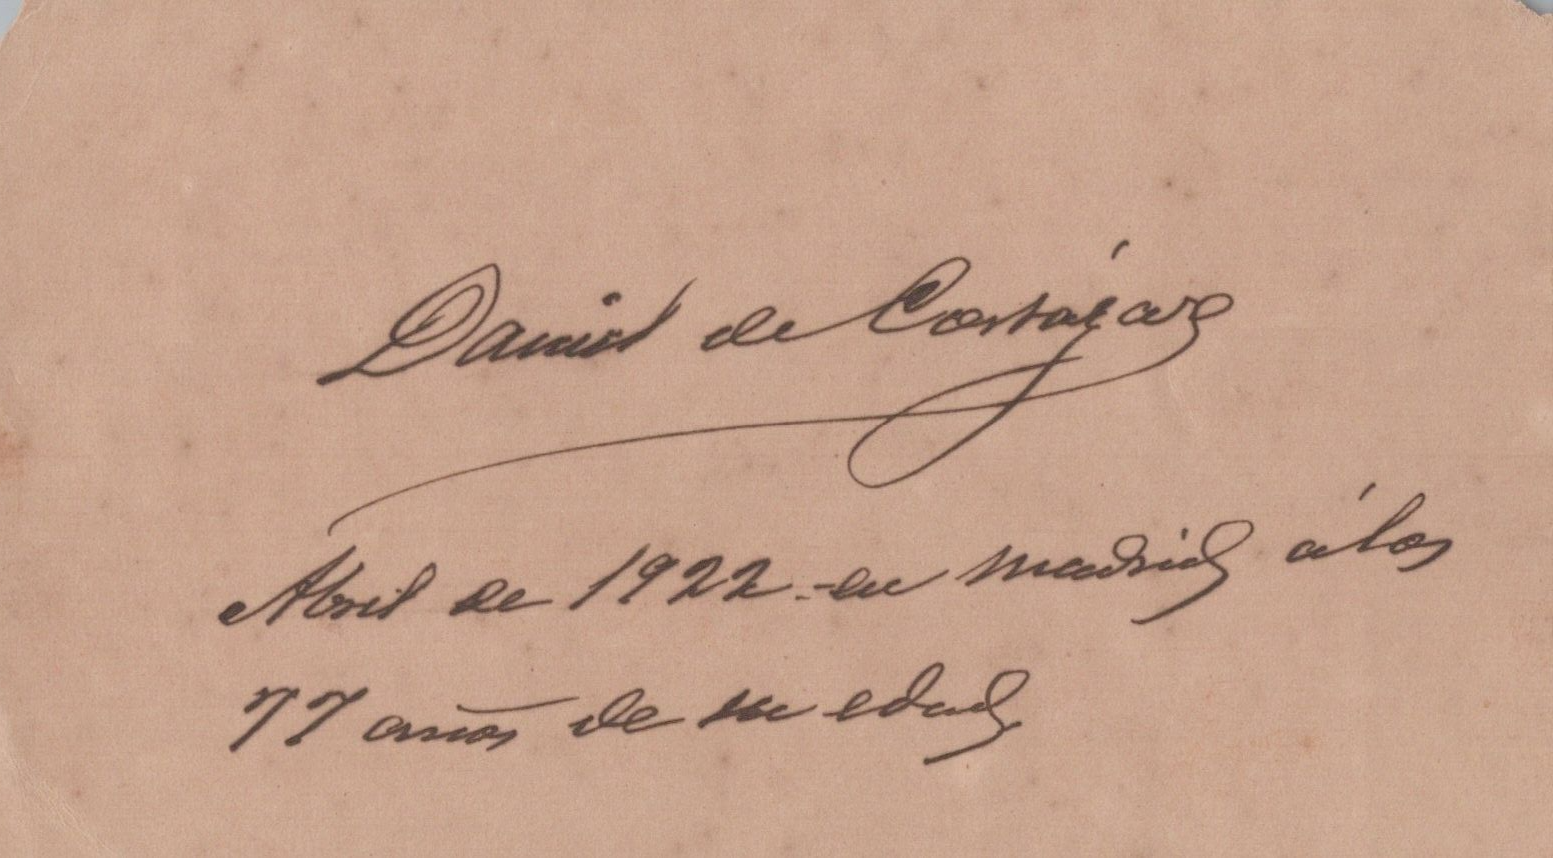 Daniel de Cortázar
Abril de 1922 - en Madrid á los
77 años de su edad